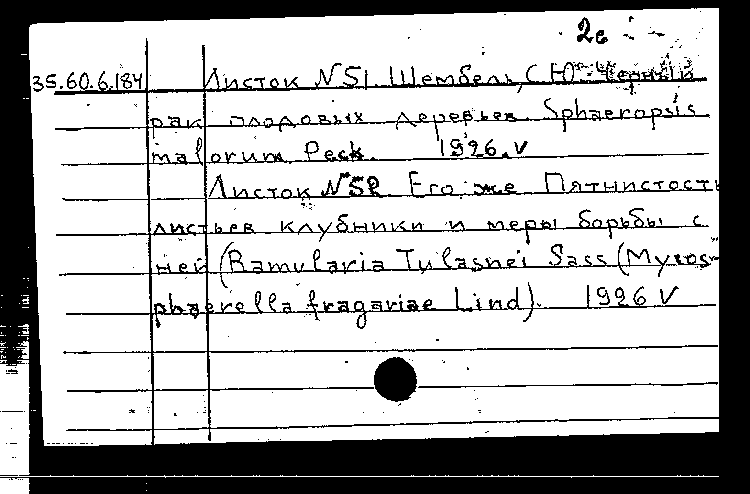 2с
35.60.6.184 Листок №51. Шембель, С.Ю. Черный
рак плодовых деревьев Sphaeropsis
malorum Peck. 1926.V
Листок №52 Его же Пятнистость
листьев клубники и меры борьбы с
ней (Ramularia Tulasnei Sass (Mycos-
phaerella fragariae Lind). 1926 V